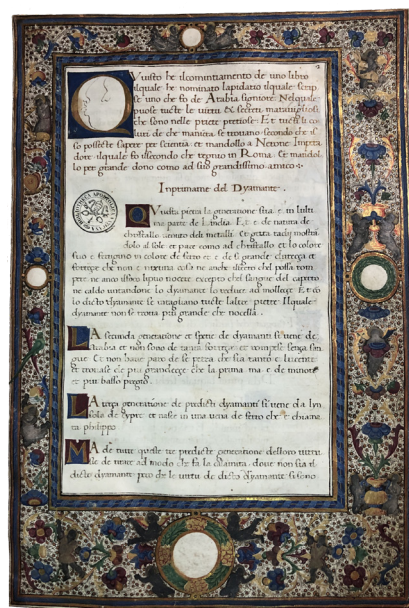 Questo he ilcominciamento de uno libro
ilquale he nominato lapidario ilquale scrip
se uno che fo de Arabia signiore Nelquale
puose tucte le virtu et secreti maravigliosi
che sono nelle priete pretiose Et tucti li co
luri de che maniera se trovano secondo che is
so possecte sapere per scientia et mandollo a Nerone Impra
dore ilquale fo ilsecondo che regnio in Roma Et mandol
lo per grande dono como ad suo grandissimo amico
Inprimame del Dyamante
Questa pietra la generatione sua e in lulti
ma parte de Lindia Et e de natura de
christallo
dolo al sole et pare como ad christallo et lo colore
suo e
fortege che non e veruna cosa ne anche altro che possa rom
pere ne
ne caldo untandone lo dyamante lo reduce ad mollece Et co
lo dicto dyamante se tucte laltre pietre Ilquale
dyamante non se trova piu grande che nocella
La seconda generatione et spetie de dyamanti si vene de
Arabia et non sono de tanta fortege et rompese senza san
gue Et non hane paro de fortezza che sia tanto e lucente
et trovase de piu grandecge che la prima ma e de minore
et piu basso pregio
La terça generatione de predicti dyamanti si vene da lyn
sola de Cypri et nasce in una vena de ferro che e chiama
ta philippo
Ma de tucte queste tre predicte generatione delloro virtu
sie de tirare ad modo che fa la calamita dove non sia il
dicto dyamante pero che le virtu de dicto dyamante si sono